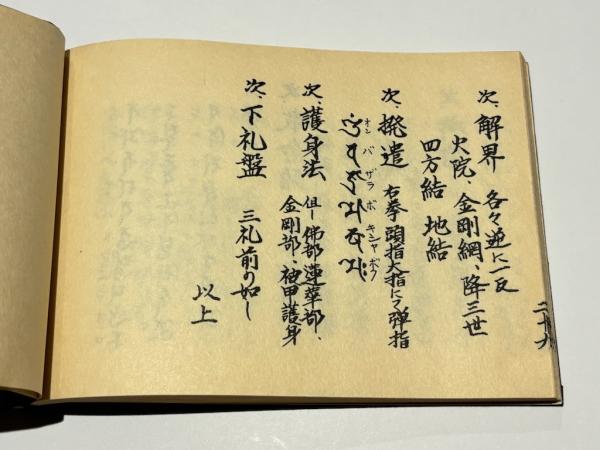 次、解界 各々逆に一反
火院、金剛網、降三世
四方結 地結
次、撥遣 右拳頭指大指にて弾指
オン バ ザラ ボ キシャ ボク
𑖌𑖼𑖪𑖕𑖿𑖨𑖦𑖺𑖎𑖿𑖬𑖦𑖲𑖾
次、護身法 但し佛部、蓮華部、
金剛部、被甲護身
次、下礼盤 三礼前の如し
以上